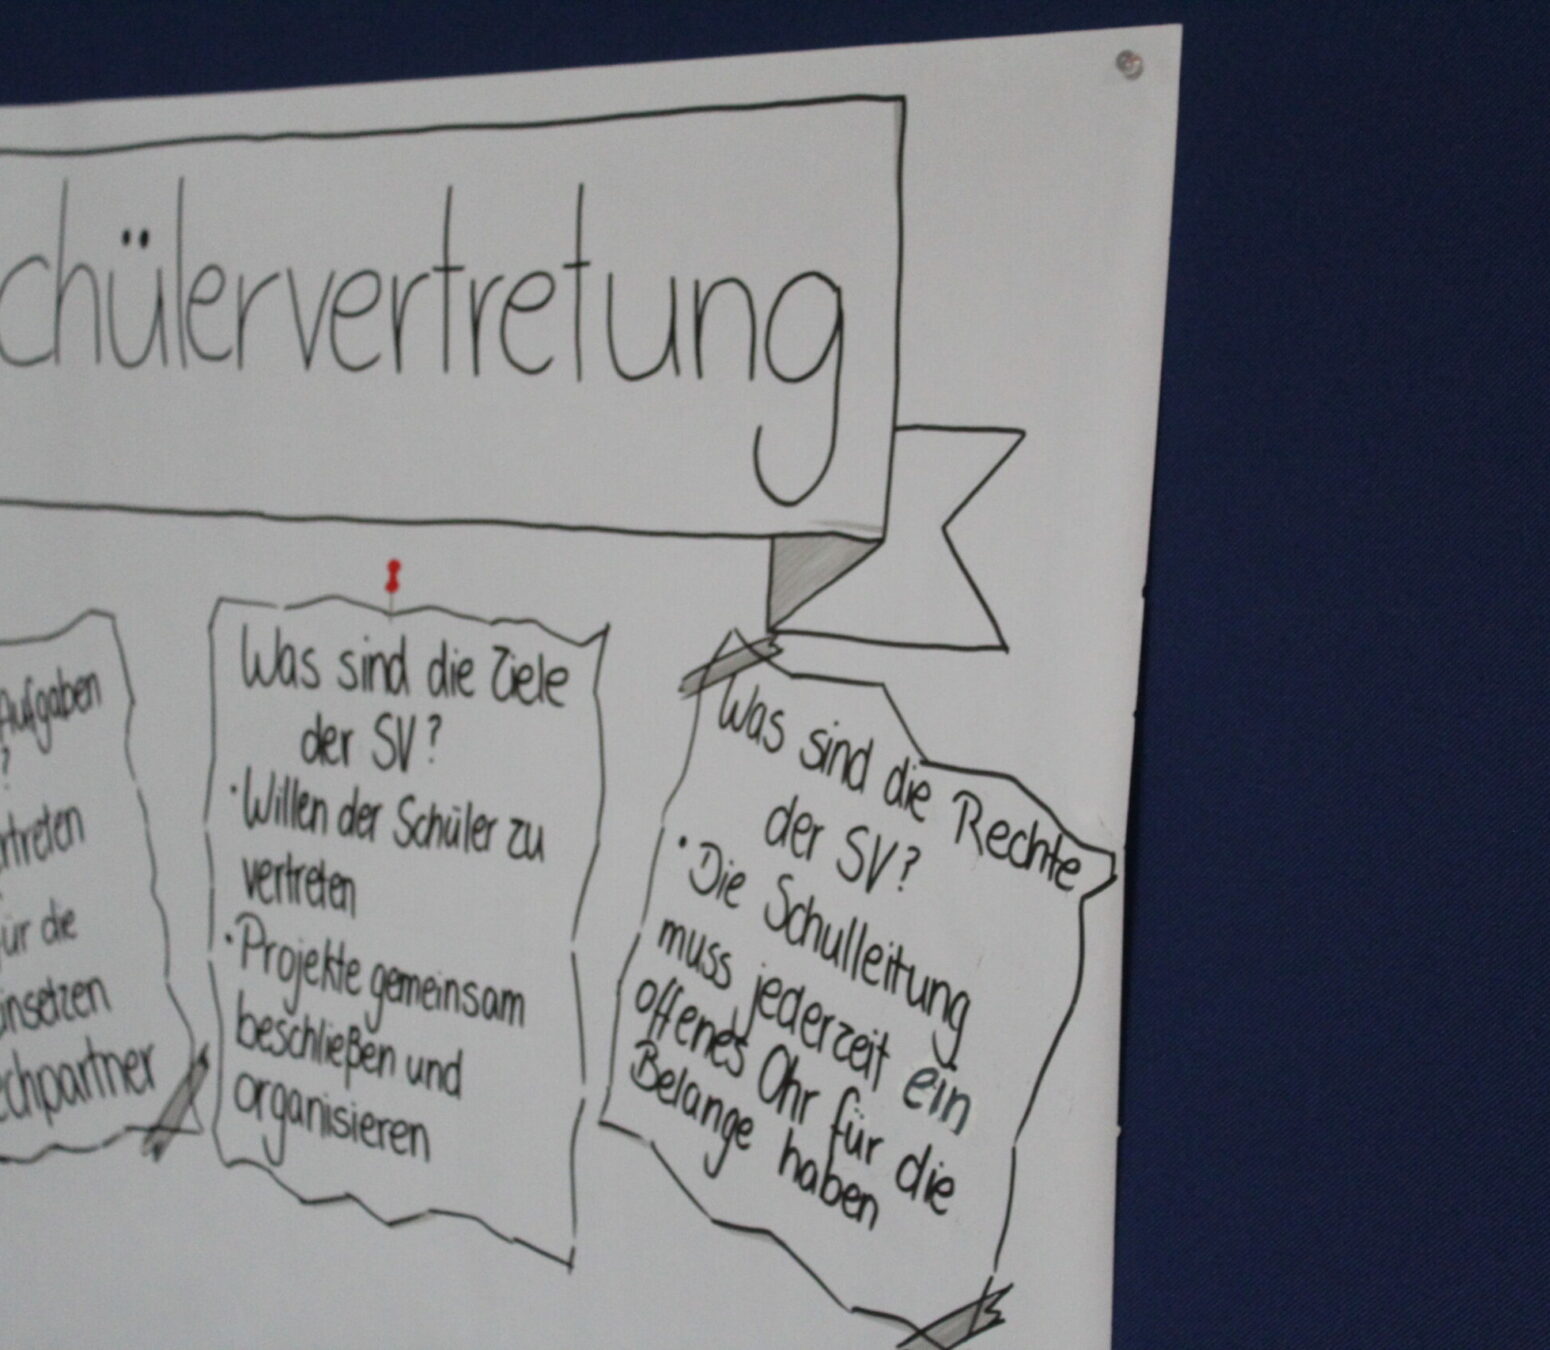 chülervertretung
Aufgaben
?
rtreten
für die
insetzen
echpartner
Was sind die Ziele
der SV?
· Willen der Schüler zu
vertreten
· Projekte gemeinsam
beschließen und
organisieren
Was sind die Rechte
der SV?
· Die Schulleitung
muss jederzeit ein
offenes Ohr für die
Belange haben